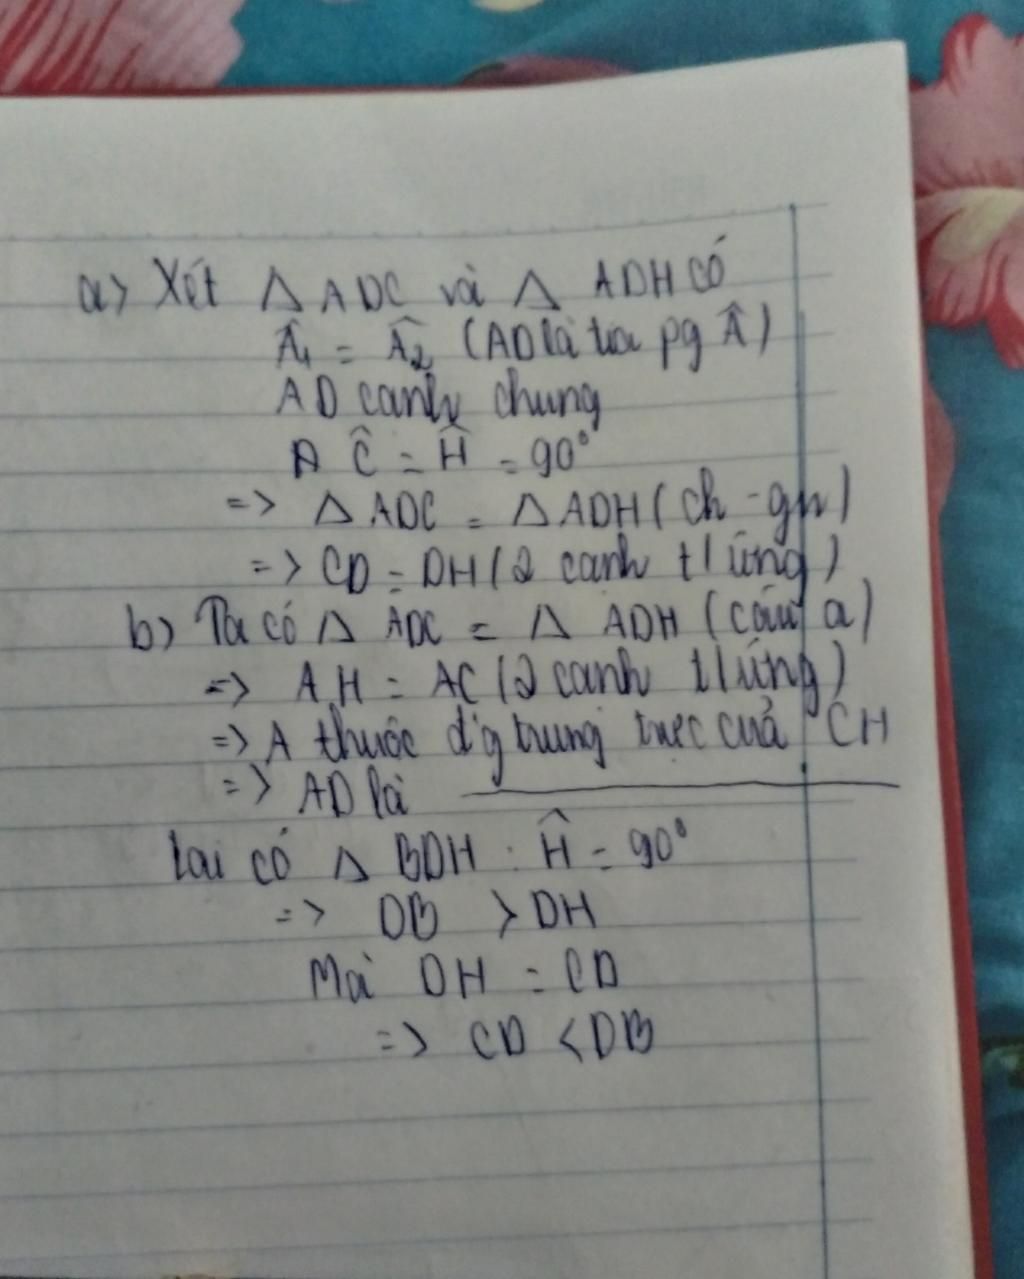 a> Xét △ ADC và △ ADH có
Â₁ = Â₂ (AD là tia pg Â)
AD cạnh chung
Ĉ = Ĥ = 90°
=> △ ADC = △ ADH (ch - gn)
=> CD = DH (2 cạnh t/ứng)
b) Ta có △ ADC = △ ADH (câu a)
=> AH = AC (2 cạnh t/ứng)
=> A thuộc đ'g trung trực của CH
=> AD là
Lại có △ BDH : Ĥ = 90°
=> DB > DH
Mà DH = CD
=> CD < DB